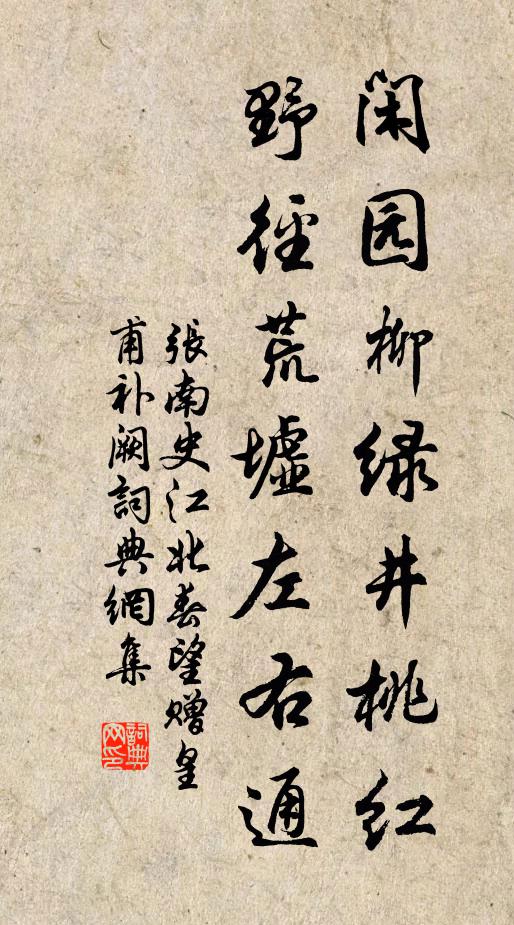 闲园柳绿井桃红
野径荒墟左右通
張南史江北春望赠皇
甫补阙詞典網集
詞典
网印